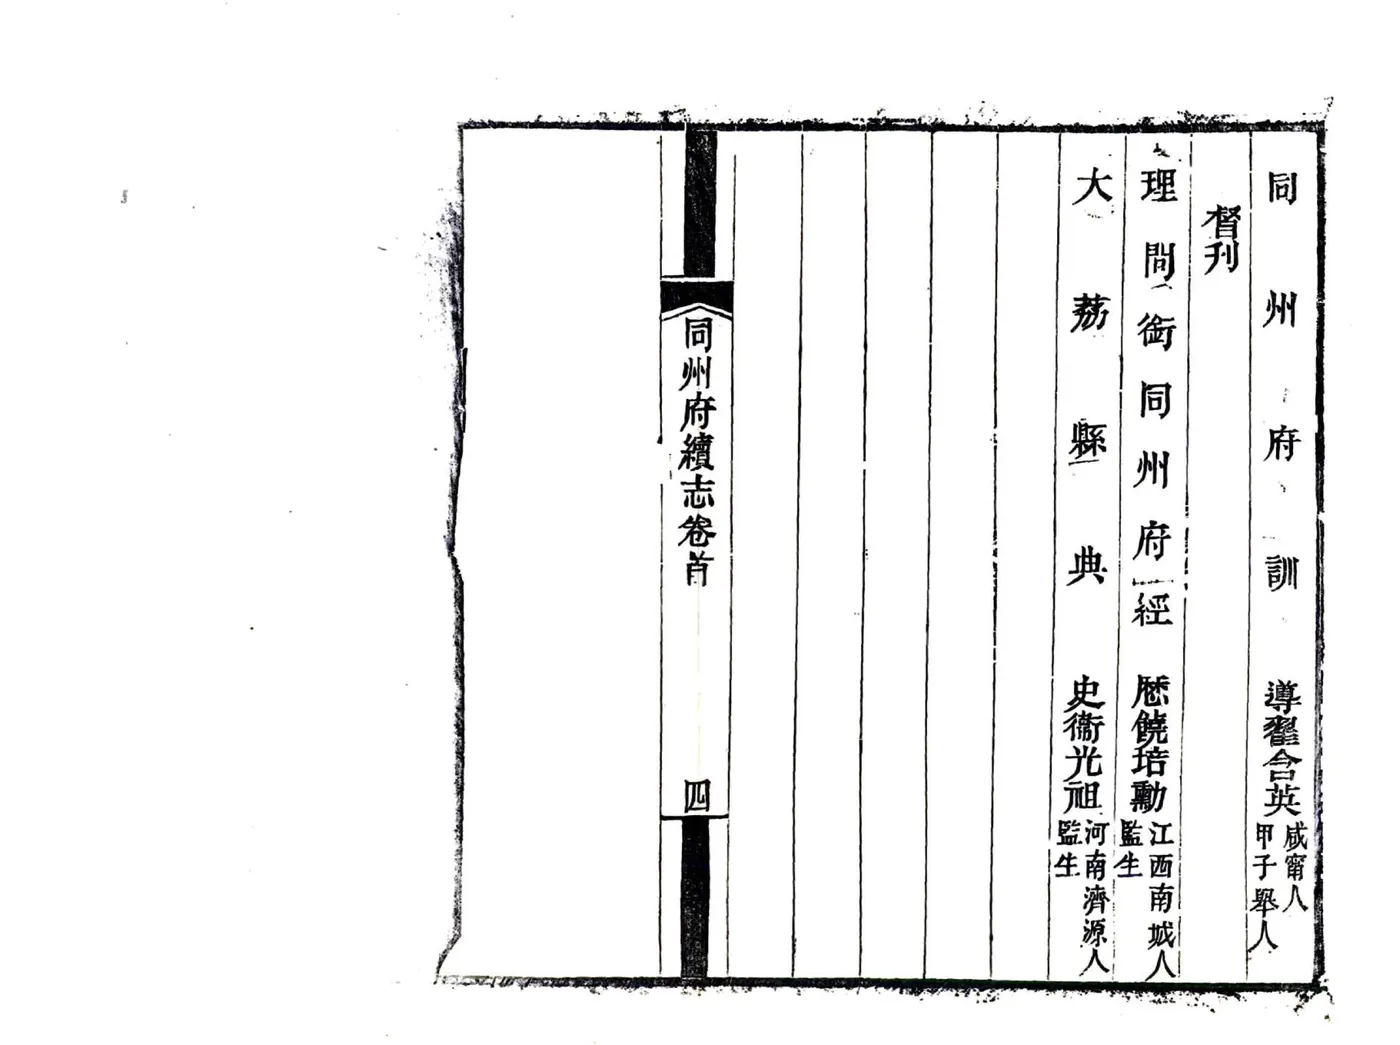 同州府訓導翟含英咸甯人
甲子舉人
督刊
理問銜同州府經厯饒培勳江西南城人
監生
大荔縣典史衞光祖河南濟源人
監生
同州府續志卷首
四